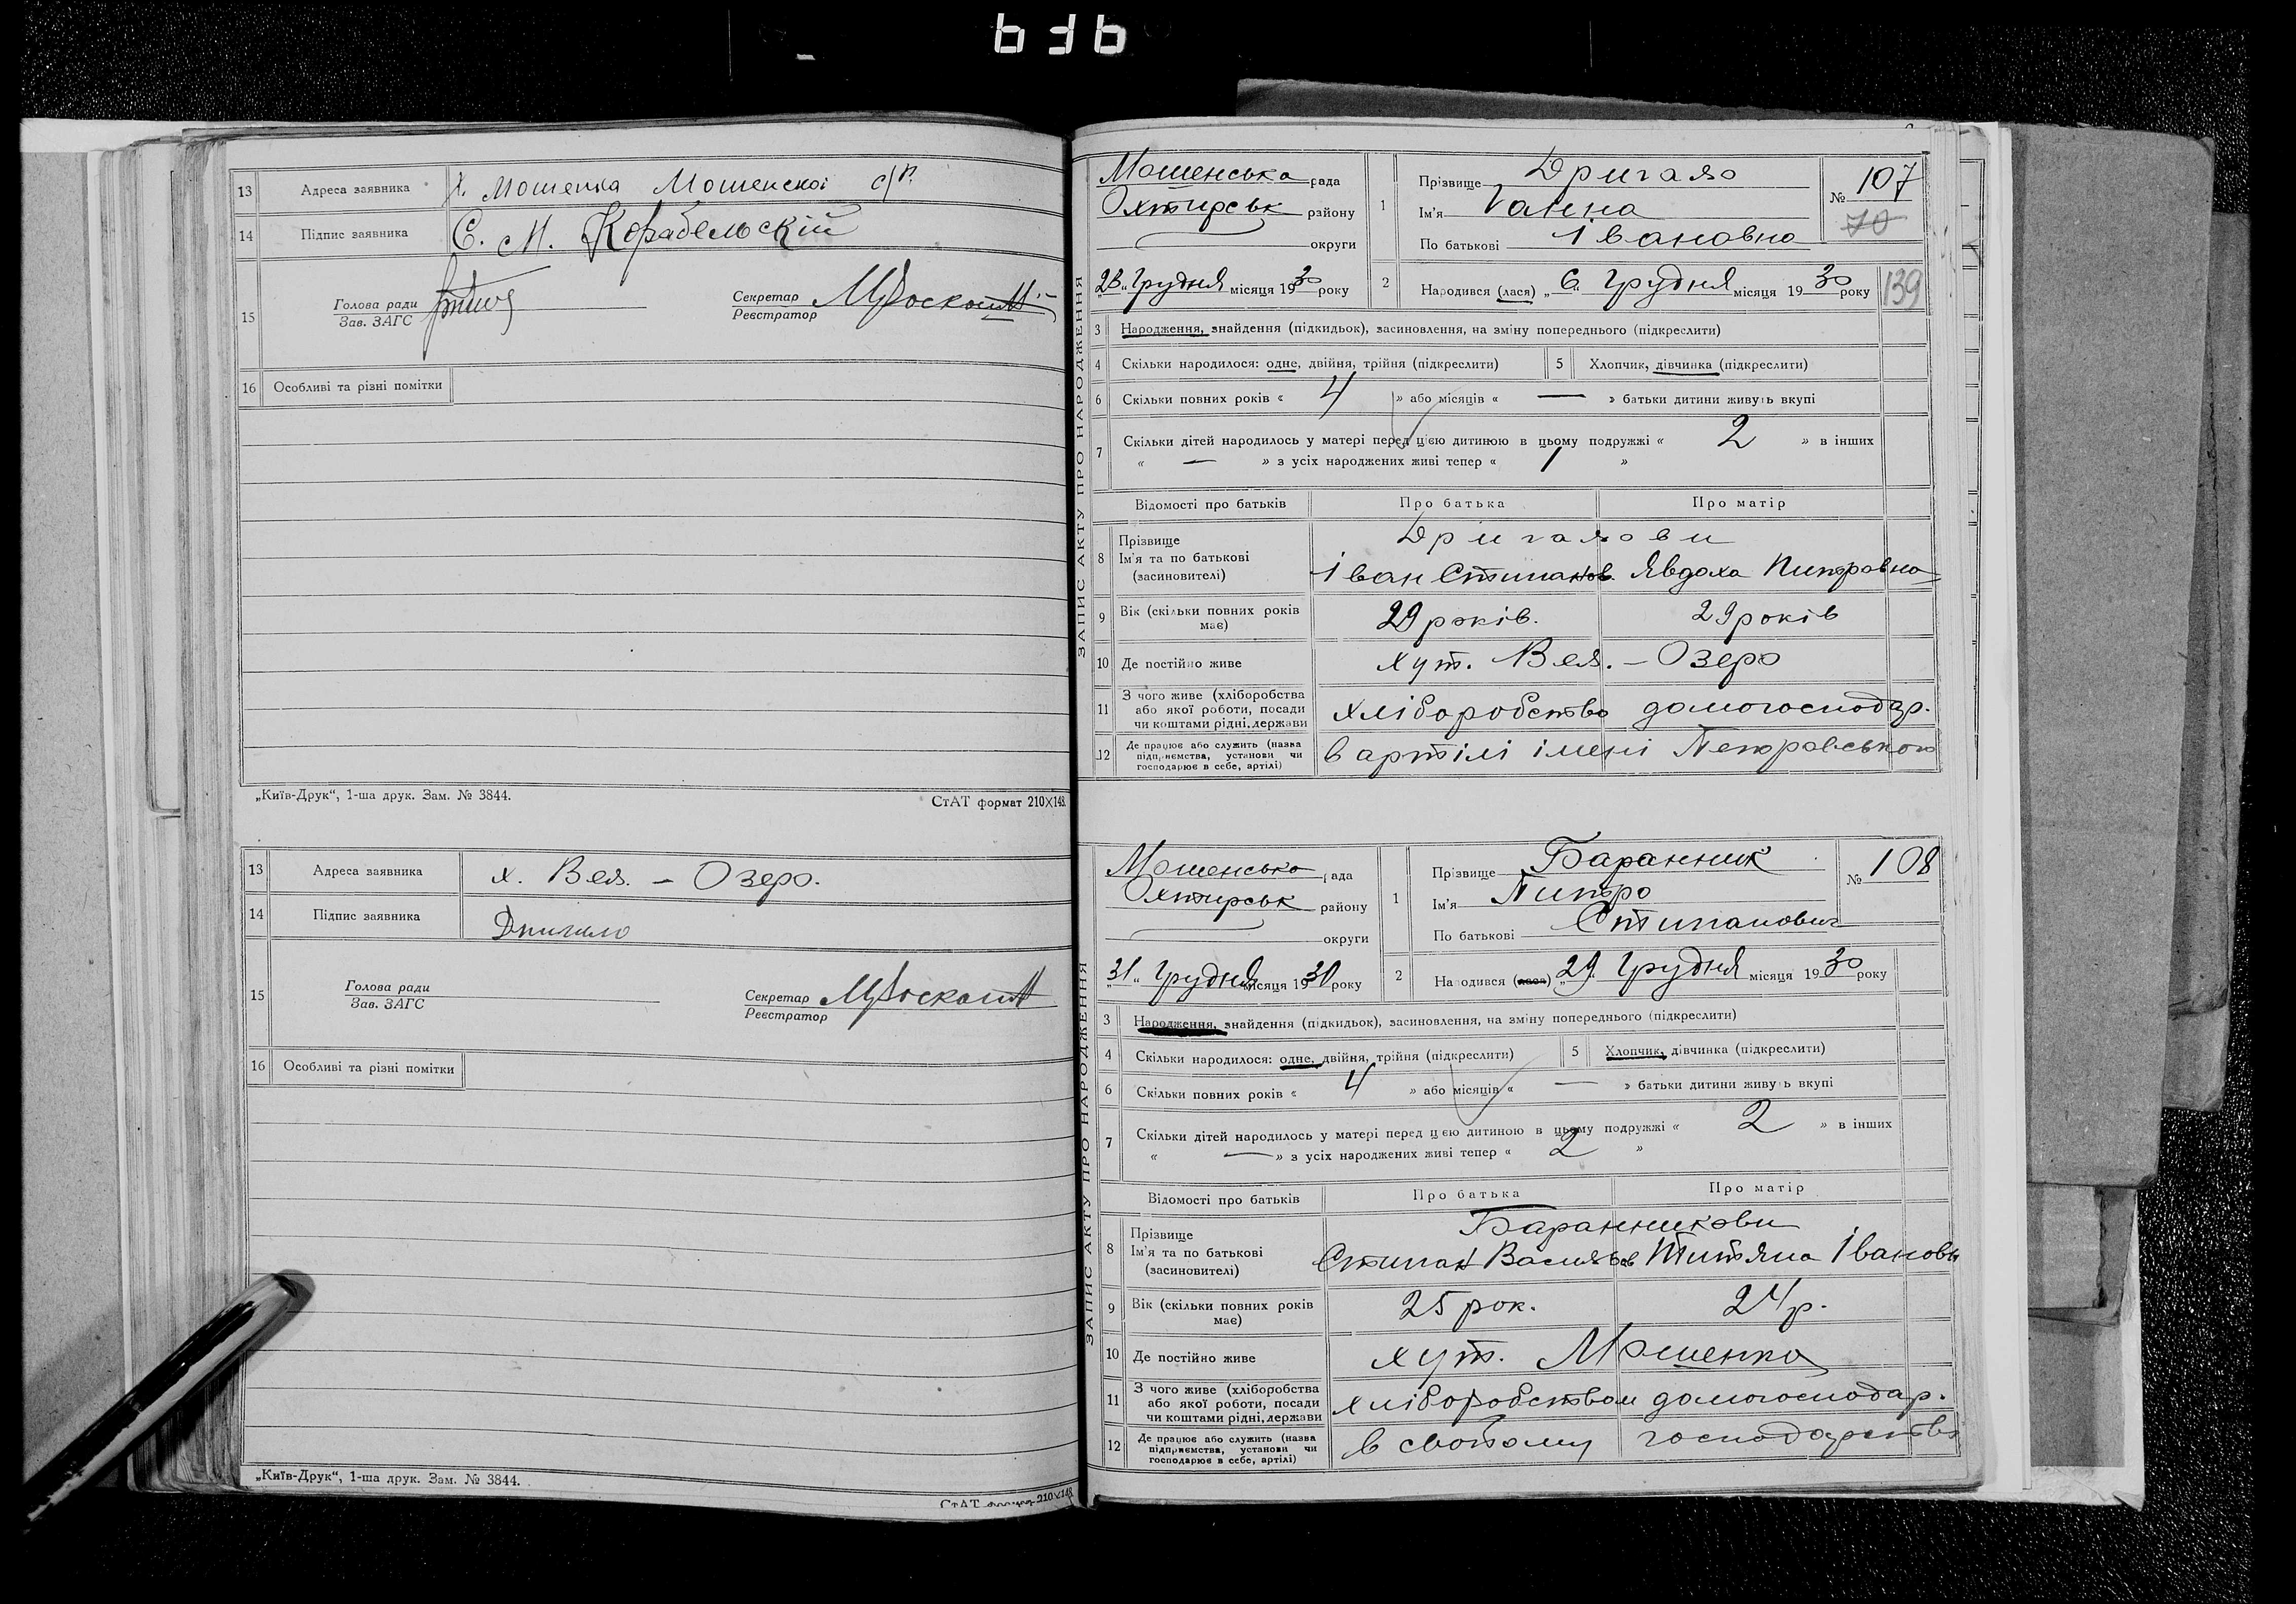 636
13 Адреса заявника х. Мошенка Мошенскої с/р.
14 Підпис заявника С. М. Корабельскій
15 Голова ради
Зав. ЗАГС
Секретар
Реєстратор
16 Особливі та різні помітки
„Київ-Друк“, 1-ша друк. Зам. № 3844. СтАТ формат 210×148.
13 Адреса заявника х. Вел. – Озеро.
14 Підпис заявника Дригало
15 Голова ради
Зав. ЗАГС
Секретар
Реєстратор
16 Особливі та різні помітки
„Київ-Друк“, 1-ша друк. Зам. № 3844.
СтАТ формат 210×148
ЗАПИС АКТУ ПРО НАРОДЖЕННЯ
Мошенська рада
Охтирськ району
округи
„23“ Грудня місяця 1930 року
1 Прізвище Дригало
Ім'я Ганна
По батькові Івановна
№ 107
70
2 Народився (лася) „6“ Грудня місяця 1930 року
139
3 Народження, знайдення (підкидьок), засиновлення, на зміну попереднього (підкреслити)
4 Скільки народилося: одне, двійня, трійня (підкреслити) 5 Хлопчик, дівчинка (підкреслити)
6 Скільки повних років « 4 » або місяців « — » батьки дитини живуть вкупі
7 Скільки дітей народилось у матері перед цією дитиною в цьому подружжі « 2 » в інших
« — » з усіх народжених живі тепер « 1 »
Відомості про батьків Про батька Про матір
8 Прізвище Дригалови
Ім'я та по батькові
(засновителі) Іван Стипанов. Явдоха Питровна
9 Вік (скільки повних років має) 29 років. 29 років
10 Де постійно живе хут. Вел. – Озеро
11 З чого живе (хліборобства
або якої роботи, посади
чи коштами рідні, держави хліборобство домогосподар.
12 Де працює або служить (назва
підприємства, установи чи
господарює в себе, артілі) в артілі імені Петровського
ЗАПИС АКТУ ПРО НАРОДЖЕННЯ
Мошенська рада
Охтирськ району
округи
„31“ Грудня місяця 1930 року
1 Прізвище Баранник
Ім'я Питро
По батькові Стипанович
№ 108
2 Народився (лася) „29“ Грудня місяця 1930 року
3 Народження, знайдення (підкидьок), засиновлення, на зміну попереднього (підкреслити)
4 Скільки народилося: одне, двійня, трійня (підкреслити) 5 Хлопчик, дівчинка (підкреслити)
6 Скільки повних років « 4 » або місяців « — » батьки дитини живуть вкупі
7 Скільки дітей народилось у матері перед цією дитиною в цьому подружжі « 2 » в інших
« — » з усіх народжених живі тепер « 2 »
Відомості про батьків Про батька Про матір
8 Прізвище Баранникови
Ім'я та по батькові
(засиновителі) Стипан Васильов Титяна Івановн
9 Вік (скільки повних років має) 25 рок. 24 р.
10 Де постійно живе хут. Мошенка
11 З чого живе (хліборобства
або якої роботи, посади
чи коштами рідні, держави хліборобством домогосподар.
12 Де працює або служить (назва
підприємства, установи чи
господарює в себе, артілі) в свойому господарстві